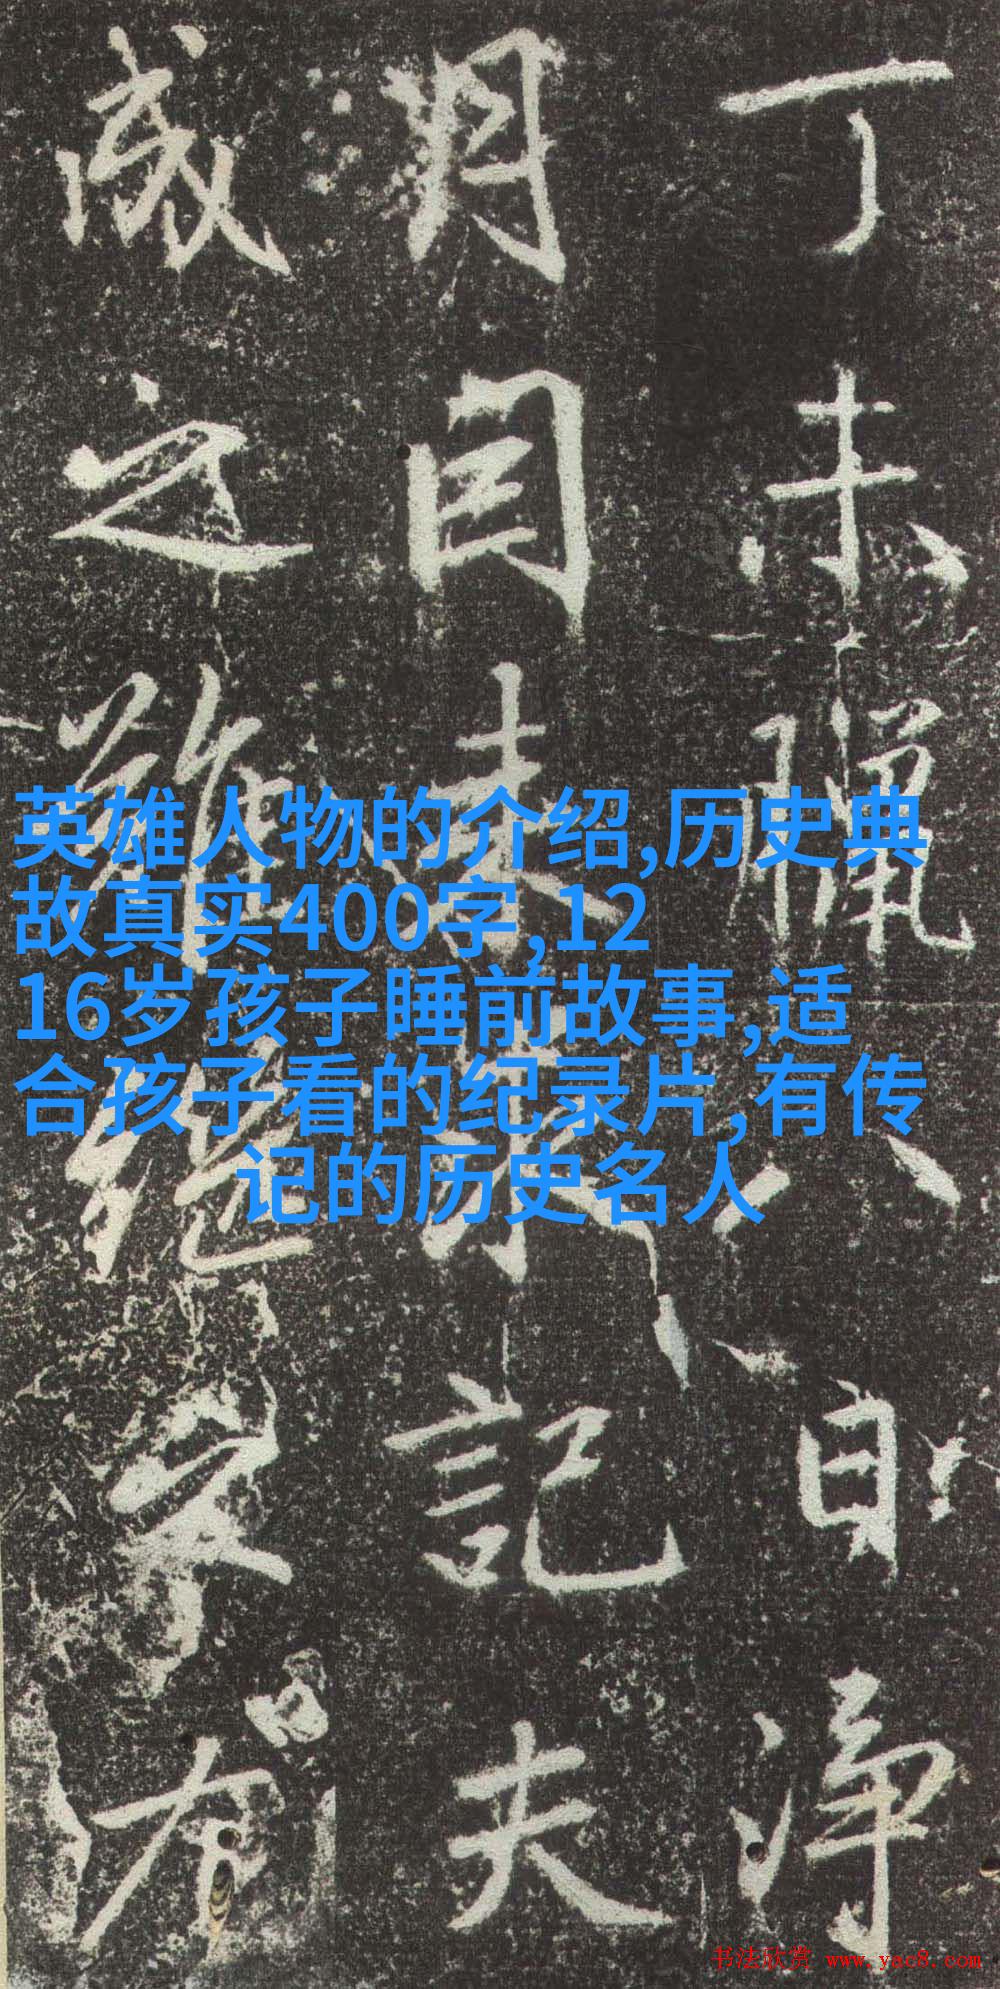 丁未臘八日淨
月因来求記夫
成之難守
英雄人物的介绍,历史典
故真实400字,12
16岁孩子睡前故事,适
合孩子看的纪录片,有传
记的历史名人
书法欣赏 www.yac8.com